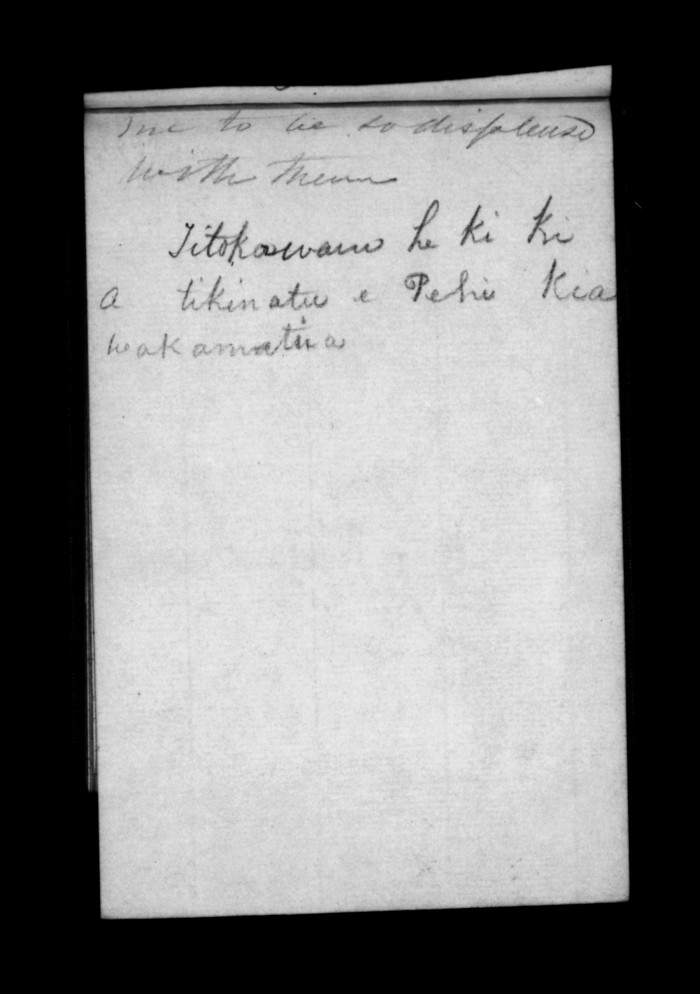 me to be so displeased
with them
Titokowaru he ki ki
a tikinatu e Pehi kia
wakamatua